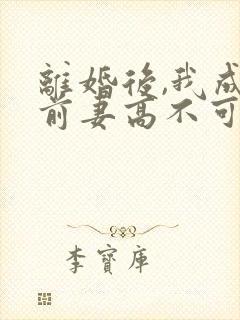 離婚後,我成
前妻高不可
李寶庫